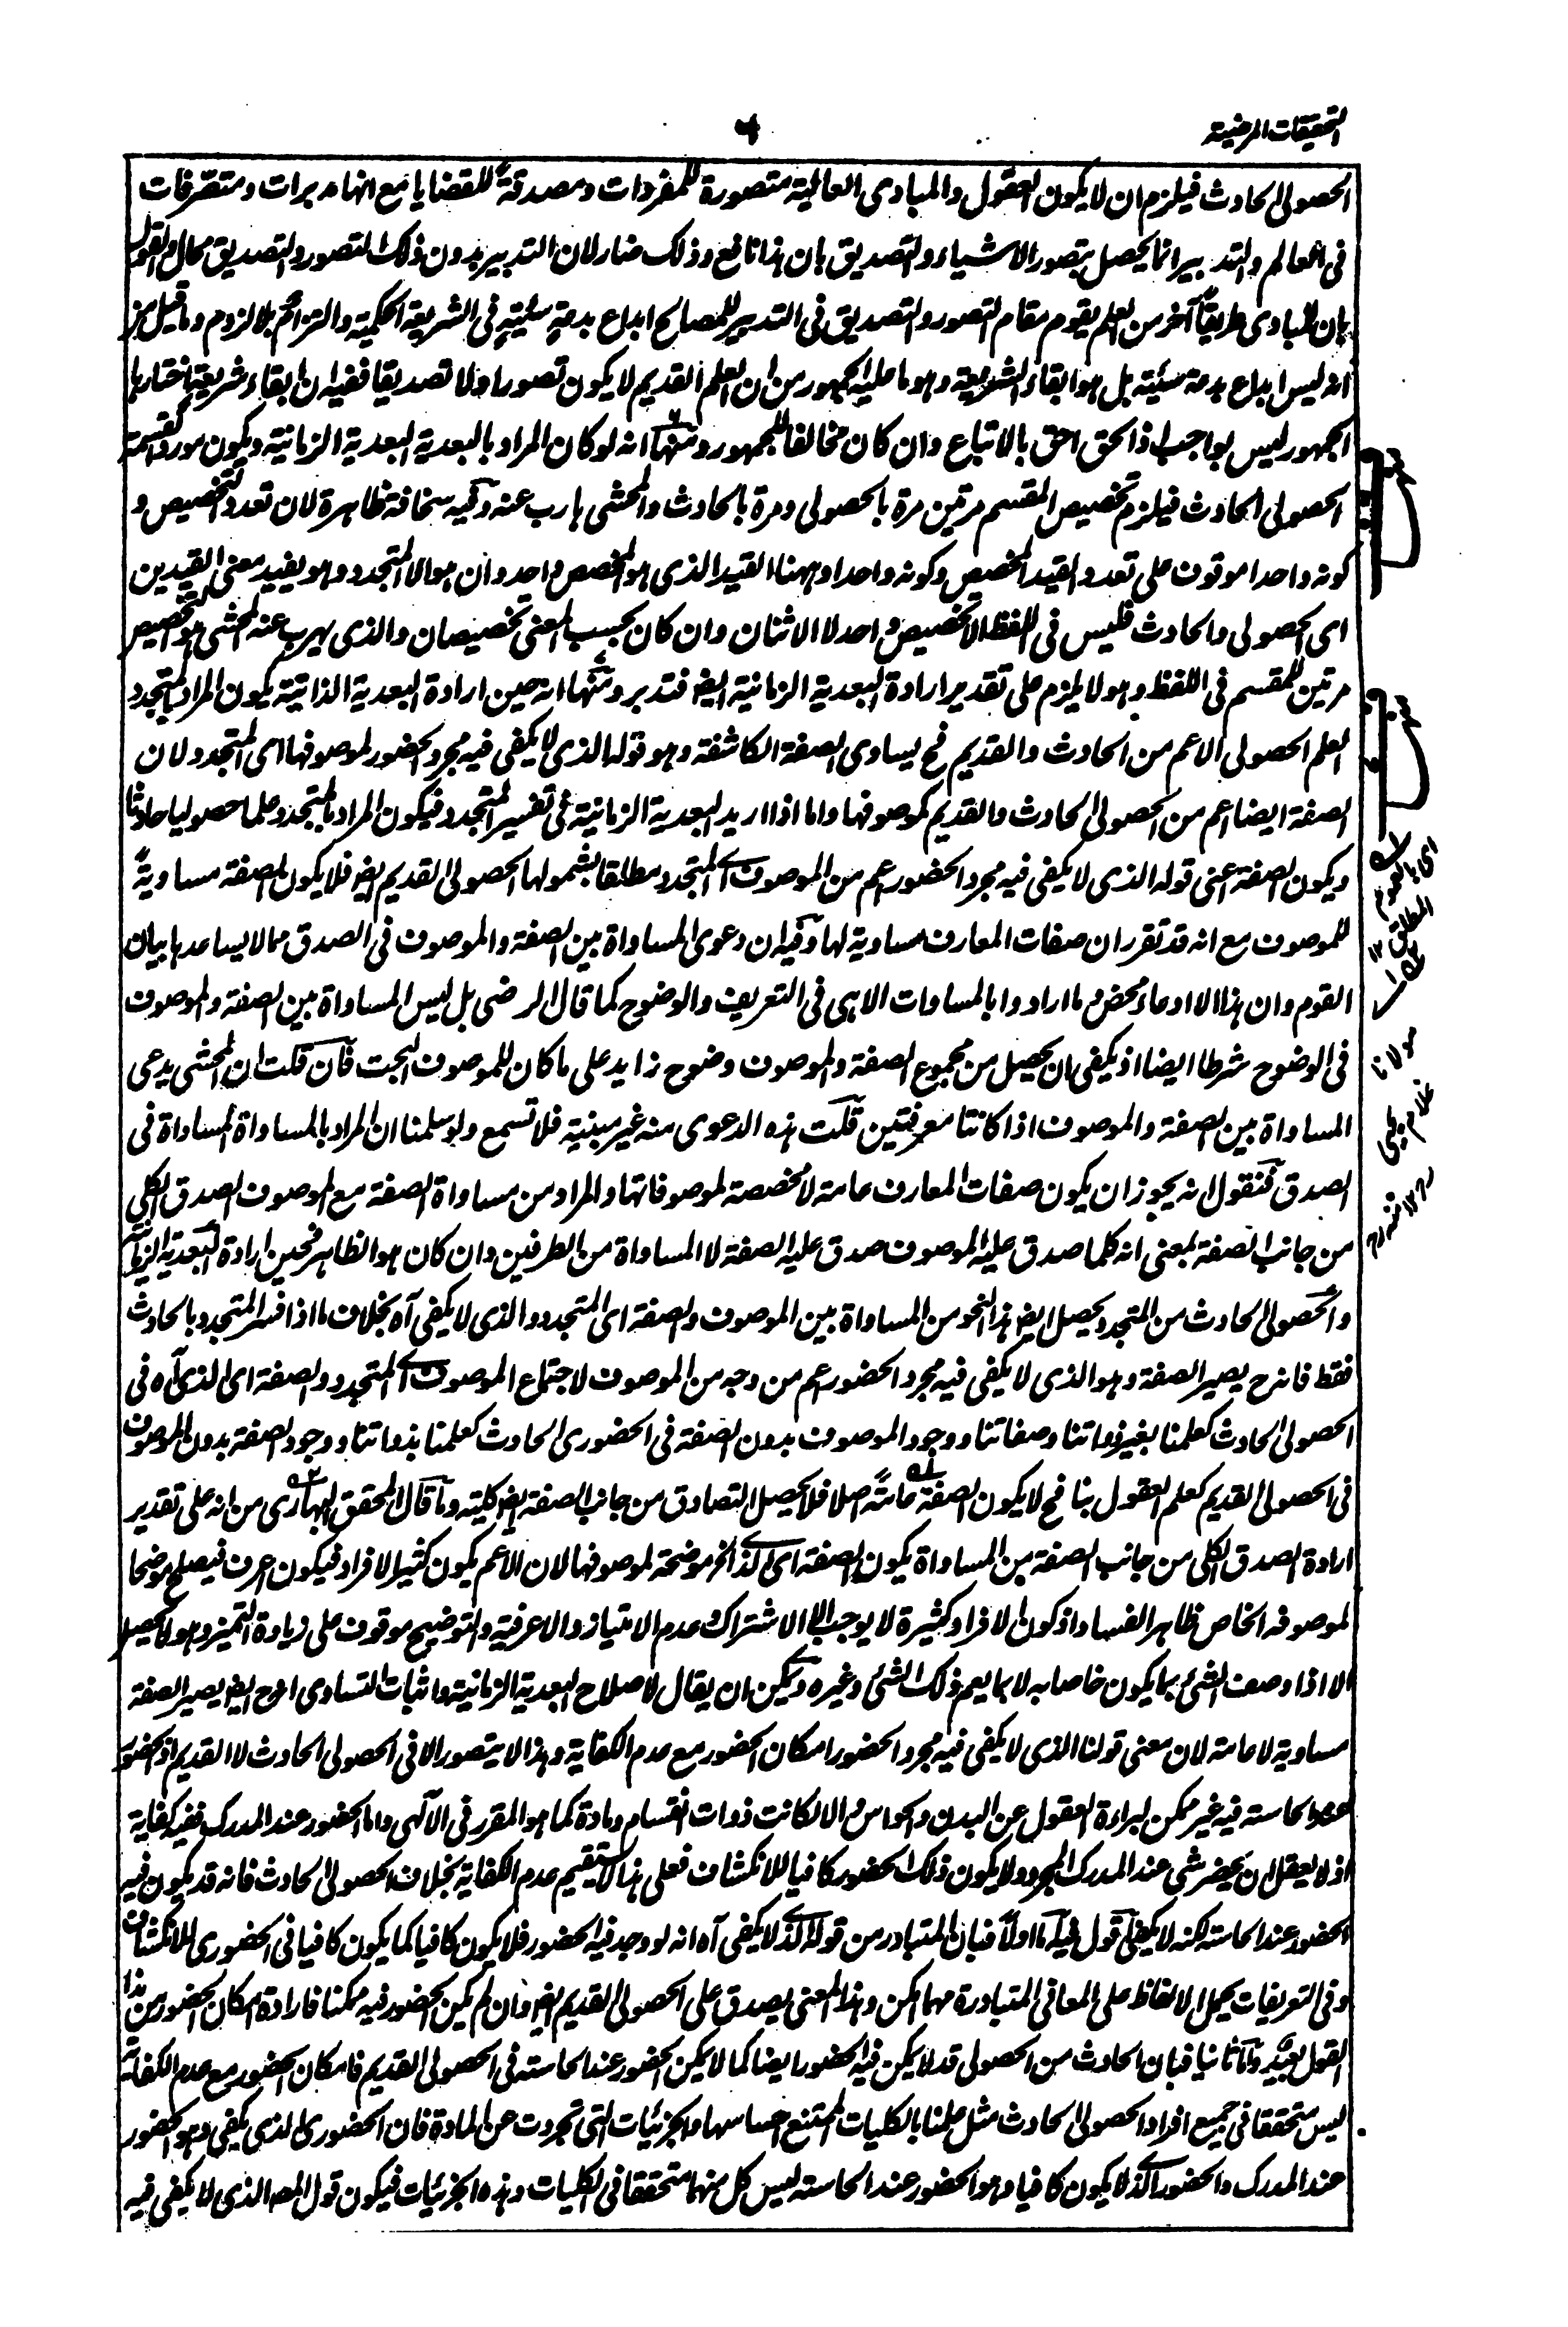 التحقیقات المرضیة
۶
الحصولی الحادث فیلزم ان لا یکون العقول والمبادی العالیة متصورة للمفردات ومصدقة للقضایا مع انها مدبرات ومتصرفات
فی العالم والتدبیر انما یحصل بتصور الاشیاء والتصدیق بان هذا نافع وذلک ضار لان التدبیر بدون ذلک التصور والتصدیق محال والقول
بان للمبادی طریقاً آخر من العلم یقوم مقام التصور والتصدیق فی التدبیر للمصالح ابداع بدعةٍ سیئةٍ فی الشریعة الحکمیة والتزام بلا لزوم وما قیل من
انه لیس ابداع بدعة سیئة بل هو ابقاء الشریعة وهو ما علیه الجمهور من ان العلم القدیم لا یکون تصورا ولا تصدیقا ففیه ان ابقاء شریعة اختارها
الجمهور لیس بواجب اذ الحق احق بالاتباع وان کان مخالفا للجمهور ومنها انه لو کان المراد بالبعدیة البعدیة الزمانیة ویکون مورد القسمة
الحصولی الحادث فیلزم تخصیص المقسم مرتین مرة بالحصولی ومرة بالحادث والمحشی هارب عنه وفیه سخافة ظاهرة لان تعدد التخصیص و
کونه واحدا موقوف علی تعدد القید المخصص وکونه واحدا وههنا القید الذی هو المخصص واحد وان هو الا المتجدد وهو یفید معنی القیدین
ای الحصولی والحادث فلیس فی اللفظ الا تخصیص واحد لا الاثنان وان کان بحسب المعنی تخصیصان والذی یهرب عنه المحشی هو التخصیص
مرتین للمقسم فی اللفظ وهو لا یلزم علی تقدیر ارادة البعدیة الزمانیة ایضا فتدبر ومنها انه حین ارادة البعدیة الذاتیة یکون المراد بالمتجدد
العلم الحصولی الاعم من الحادث والقدیم فح یساوی الصفة الکاشفة وهو قوله الذی لا یکفی فیه مجرد الحضور لموصوفها ای المتجدد لان
الصفة ایضا اعم من الحصولی الحادث والقدیم کموصوفها واما اذا ارید البعدیة الزمانیة فی تفسیر المتجدد فیکون المراد بالمتجدد علما حصولیا حادثا
ویکون الصفة اعنی قوله الذی لا یکفی فیه مجرد الحضور اعم من الموصوف ای المتجدد مطلقا بشمولها الحصولی القدیم ایض فلا یکون الصفة مساویةً
للموصوف مع انه قد تقرر ان صفات المعارف مساویة لها وفیه ان دعوی المساواة بین الصفة والموصوف فی الصدق مما لا یساعدها بیان
القوم وان هذا الا ادعاء محض وما ارادوا بالمساوات الا هی فی التعریف والوضوح کما قال الرضی بل لیس المساواة بین الصفة والموصوف
فی الوضوح شرطا ایضا اذ یکفی بان یحصل من مجموع الصفة والموصوف وضوح زاید علی ما کان للموصوف البحت فان قلت ان المحشی یدعی
المساواة بین الصفة والموصوف اذا کانتا معرفتین قلت هذه الدعوی منه غیر مبنیة فلا تسمع ولو سلمنا ان المراد بالمساواة المساواة فی
الصدق فنقول انه یجوز ان یکون صفات المعارف عامة لا مخصصة لموصوفاتها والمراد من مساواة الصفة مع الموصوف الصدق الکلی
من جانب الصفة بمعنی انه کلما صدق علیه الموصوف صدق علیه الصفة لا المساواة من الطرفین وان کان هو الظاهر فحین ارادة البعدیة الزمانیة
والحصولی الحادث من المتجدد یحصل ایض هذا النحو من المساواة بین الموصوف والصفة ای المتجدد والذی لا یکفی آه بخلاف ما اذا فسر المتجدد بالحادث
فقط فانه ح یصیر الصفة وهو الذی لا یکفی فیه مجرد الحضور اعم من وجه من الموصوف لاجتماع الموصوف ای المتجدد والصفة ای الذی آه فی
الحصولی الحادث کعلمنا بغیر ذواتنا وصفاتنا ووجود الموصوف بدون الصفة فی الحضوری الحادث کعلمنا بذواتنا ووجود الصفة بدون الموصوف
فی الحصولی القدیم کعلم العقول بنا فح لا یکون الصفة عامةً اصلا فلا یحصل التصادق من جانب الصفة ایض کلیته وما قال المحقق البهاری من انه علی تقدیر
ارادة الصدق الکلی من جانب الصفة من المساواة یکون الصفة ای الذی الخ موضحة لموصوفها لان الاعم یکون کثیر الافراد فیکون اعرف فیصلح موضحا
لموصوفه الخاص ظاهر الفساد اذ کون الافراد کثیرة لا یوجب الا الاشتراک وعدم الامتیاز والاعرفیة والتوضیح موقوف علی زیادة التمیز وهو لا یحصل
الا اذا وصف الشئ بما یکون خاصا به لا بما یعم ذلک الشئ وغیره ویمکن ان یقال لاصلاح البعدیة الزمانیة واثبات التساوی اذ ح ایض یصیر الصفة
مساویة لا عامة لان معنی قولنا الذی لا یکفی فیه مجرد الحضور امکان الحضور مع عدم الکفایة وهذا لا یتصور الا فی الحصولی الحادث لا القدیم اذ الحضور
عند الحاسة فیه غیر ممکن لبراءة العقول عن البدن والحواس والا لکانت ذوات انقسام ومادة کما هو المقرر فی الآلهی واما الحضور عند المدرک ففیه کفایة
اذ لا یعقل ان یحضر شئ عند المدرک المجرد ولا یکون ذلک الحضور کافیا للانکشاف فعلی هذا لا یستقیم عدم الکفایة بخلاف الحصولی الحادث فانه قد یکون فیه
الحضور عند الحاسة لکنه لا یکفی اقول فیه اما اولاً فبان المتبادر من قوله الذی لا یکفی آه انه لو وجد فیه الحضور فلا یکون کافیا کما یکون کافیا فی الحضوری للانکشاف
وفی التعریفات یحمل الالفاظ علی المعانی المتبادرة مهما امکن وهذا المعنی یصدق علی الحصولی القدیم ایض وان لم یکن الحضور فیه ممکنا فارادة امکان الحضور من هذا
القول بعید واما ثانیا فبان الحادث من الحصولی قد لا یمکن فیه الحضور ایضا کما لا یمکن الحضور عند الحاسة فی الحصولی القدیم فامکان الحضور مع عدم الکفایة
لیس متحققا فی جمیع افراد الحصولی الحادث مثل علمنا بالکلیات الممتنع احساسها والجزئیات التی تجردت عن المادة فان الحضوری الذی یکفی وهو الحضور
عند المدرک والحضور الذی لا یکون کافیا وهو الحضور عند الحاسة لیس کل منهما متحققا فی الکلیات وهذه الجزئیات فیکون قول المص الذی لا یکفی فیه
ای بالعموم
المطلق ۱۲
مولانا
غلام یحیی